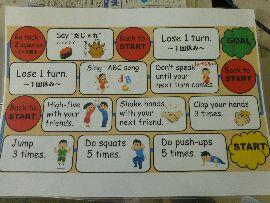 Go back
2 squares
Say "だじゃれ"
Back to
START
Lose 1 turn.
～1回休み～
GOAL
Lose 1 turn.
～1回休み～
Sing ABC song
Don't speak
until your
next turn comes.
Back to
START
Back to
START
High-five
with your
friends.
Shake hands
with your
friends.
Clap your hands
3 times.
Jump
3 times.
Do squats
5 times.
Do push-ups
5 times.
START